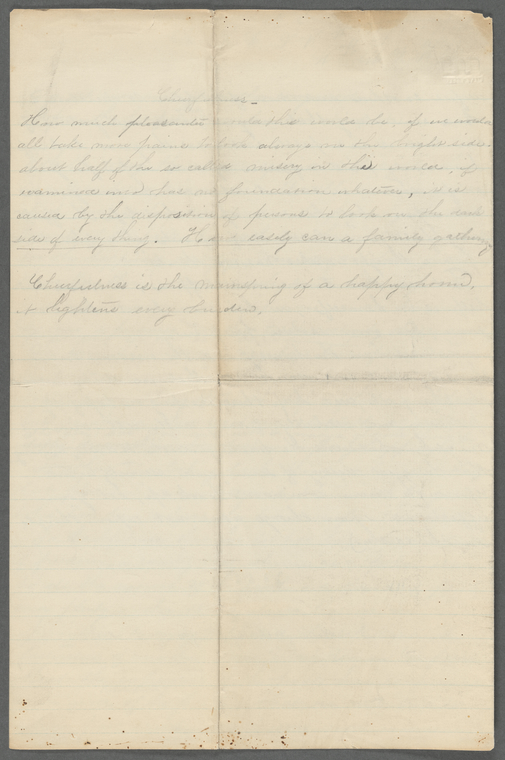 Cheerfulness.
How much pleasanter would this world be, if we would
all take more pains to look always on the bright side.
about half of the so called misery in this world, if
examined and has no foundation whatever, it is
caused by the disposition of persons to look on the dark
side of every thing. How easily can a family gathering
Cheerfulness is the mainspring of a happy home,
it lightens every burden.